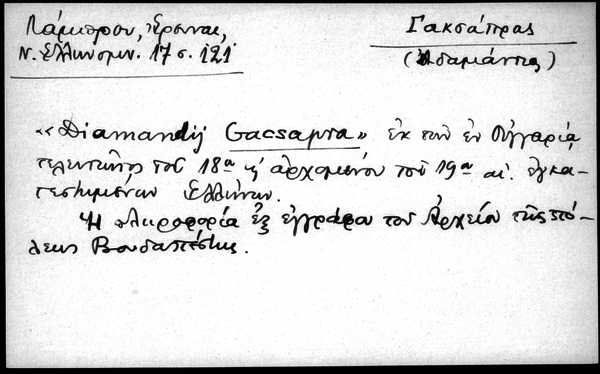 Λάμπρου, Ἔρευναι,
Ν. Ἑλληνομν. 17 σ. 121
Γακσάπρας
(Ἀδαμάντιος)
«Diamandij Gacsapra» ἐκ τῶν ἐν Οὑγγαρίᾳ
τελευτῶντος τοῦ 18ου κ' ἀρχομένου τοῦ 19ου αἰ. ἐγκα-
τεστημένων Ἑλλήνων.
Ἡ πληροφορία ἐξ ἐγγράφου τοῦ Ἀρχείου τῆς πό-
λεως Βουδαπέστης.